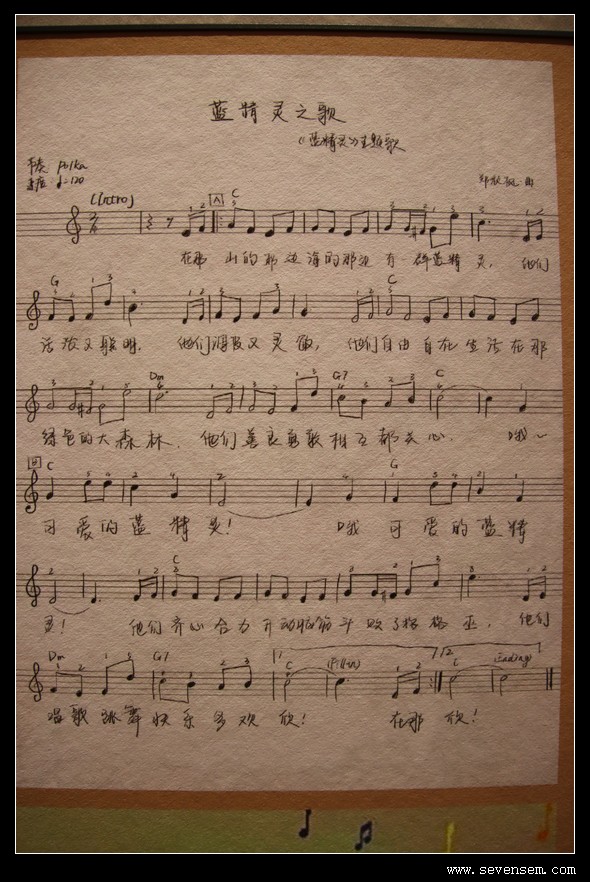 蓝精灵之歌
《蓝精灵》主题歌
节奏 Polka
速度 ♩=120
曲
(Intro) A C
在那 山的那边海的那边 有一群蓝精灵, 他们
G C
活泼又聪明. 他们调皮又灵敏, 他们自由自在生活在那
Dm G7 C
绿色的大森林. 他们善良勇敢相互都关心. 哦~
B C G
可爱的蓝精灵! 哦 可爱的蓝精
C
灵! 他们齐心合力开动脑筋斗败了格格巫, 他们
Dm G7 1 C (Fill-in) 2 C (Ending)
唱歌跳舞快乐多欢欣! 在那 欣!
www.sevensem.com